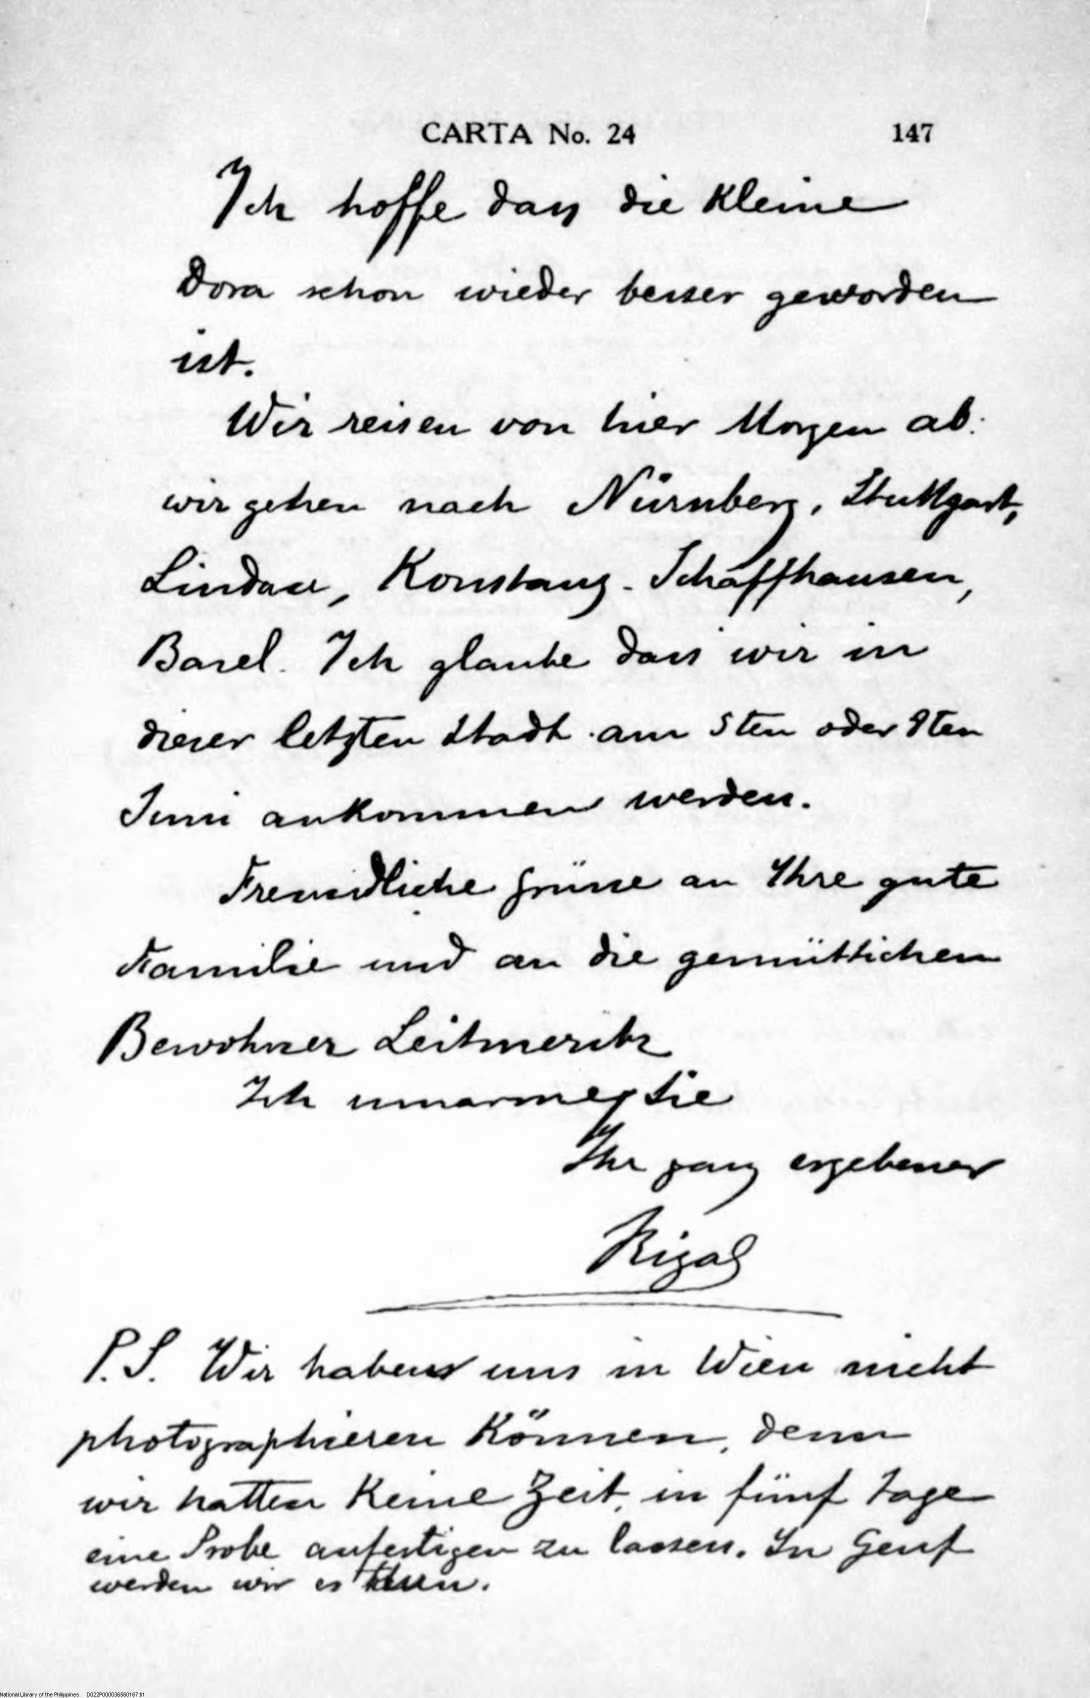 CARTA No. 24 147
Ich hoffe dass die Kleine
Dora schon wieder besser geworden
ist.
Wir reisen von hier Morgen ab:
wir gehen nach Nürnberg, Stuttgart,
Lindau, Konstanz - Schaffhausen,
Basel. Ich glaube dass wir in
dieser letzten Stadt am 5ten oder
Juni ankommen werden.
Freundliche Grüsse an Ihre gute
Familie und an die gemüthlichen
Bewohner Leitmeritz
Ich umarme Sie
Ihr ganz ergebener
Rizal
P.S. Wir haben uns in Wien nicht
photographieren Können, denn
wir hatten Keine Zeit, in fünf Tage
eine Probe anfertigen zu lassen. In Genf
werden wir es thun.
National Library of the Philippines